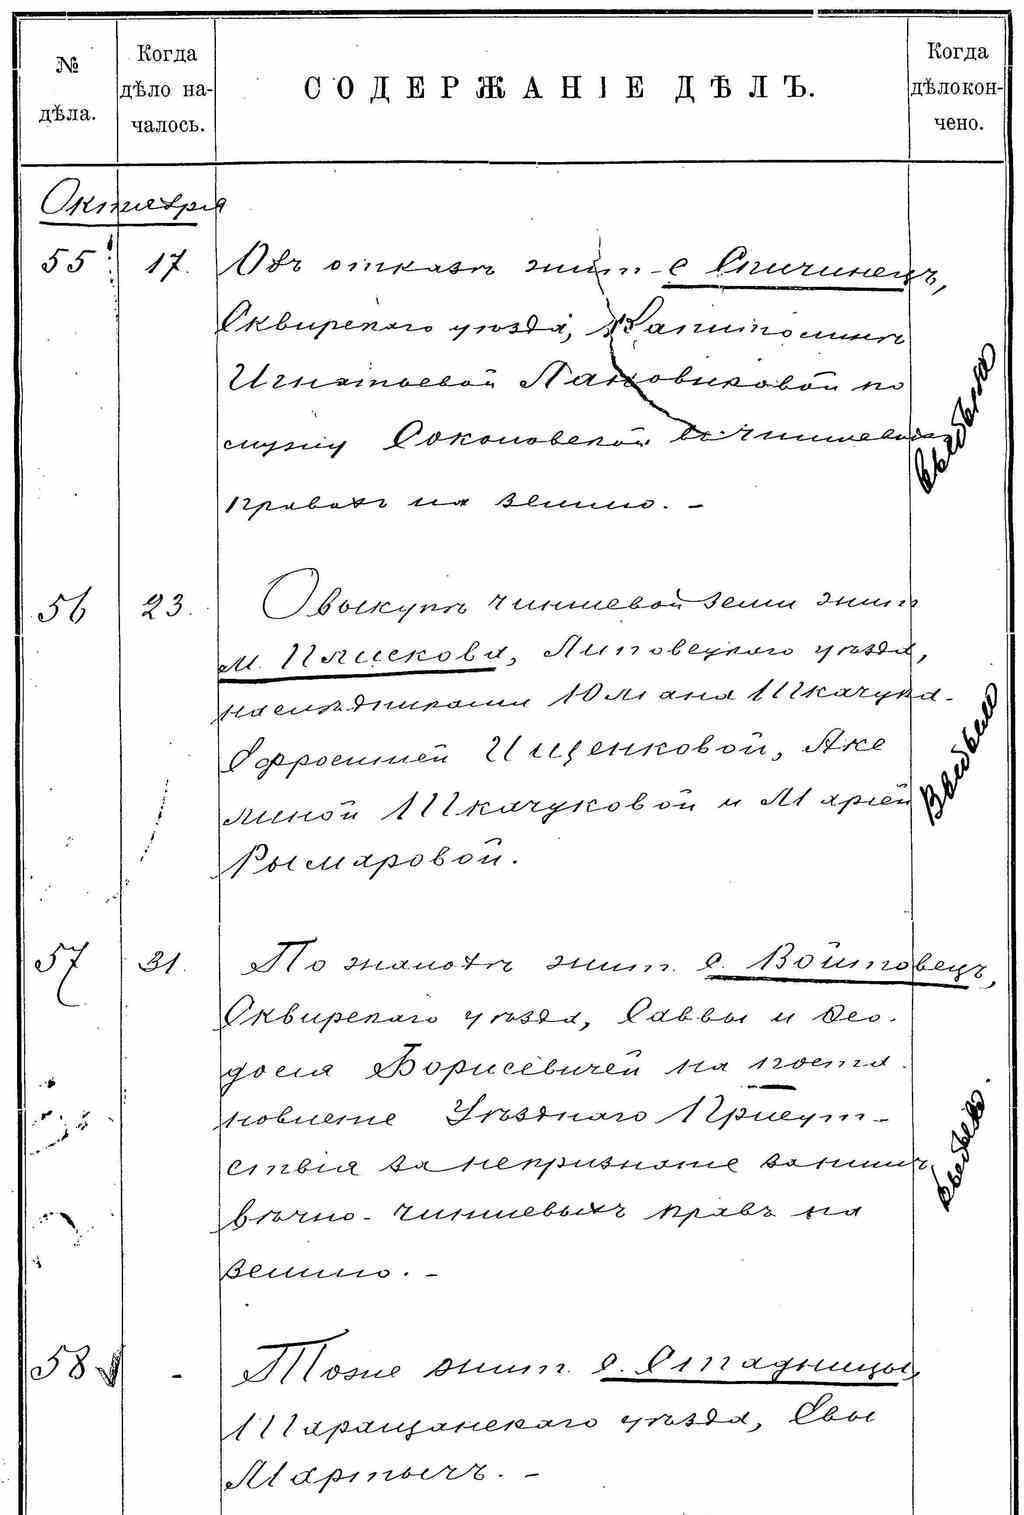 № дѣла.
Когда дѣло на-чалось.
СОДЕРЖАНІЕ ДѢЛЪ.
Когда дѣло кон-чено.
Октября
55 17. Объ отказѣ жит. с. Спичинецъ,
Сквирскаго уѣзда, Капитолинѣ
Игнатьевой Лановиковой по
мужу Соколовской въ чиншевыхъ
правахъ на землю. –
выбыла
56 23. О выкупѣ чиншевой земли жит
м. Плискова, Липовецкаго уѣзда,
наслѣдниками Юліана Ткачука-
Ефросиніей Ищенковой, Аке
линой Ткачуковой и Маріей
Рымаровой.
Выбыло
57 31. По жалобѣ жит. с. Войтовецъ,
Сквирскаго уѣзда, Саввы и Ѳео-
досія Борисевичей на поста-
новленіе Уѣзднаго Присут-
ствія за непризнаніе за ними
вѣчно-чиншевыхъ правъ на
землю. –
выбыло.
58 - Тоже жит. с. Стадницы,
Таращанскаго уѣзда, Евы
Мартычъ. –